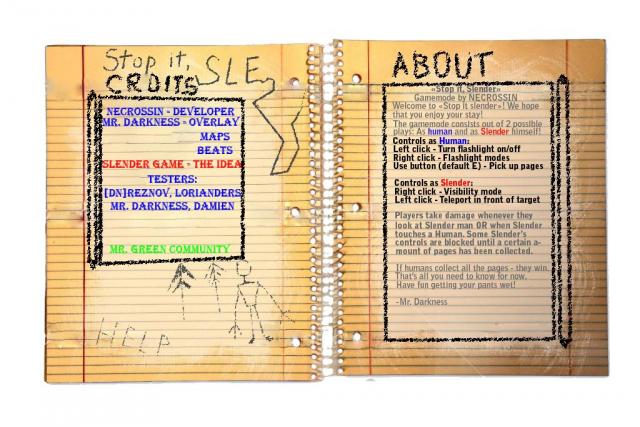 Stop it, SLE
CRDITS
NECROSSIN - DEVELOPER
MR. DARKNESS - OVERLAY
MAPS
BEATS
SLENDER GAME - THE IDEA
TESTERS:
[DN]REZNOV, LORIANDERS,
MR. DARKNESS, DAMIEN
MR. GREEN COMMUNITY
HELP
ABOUT
«Stop it, Slender»
Gamemode by NECROSSIN
Welcome to «Stop it slender»! We hope
that you enjoy your stay!
The gamemode consists out of 2 possible
plays: As human and as Slender himself!
Controls as Human:
Left click - Turn flashlight on/off
Right click - Flashlight modes
Use button (default E) - Pick up pages
Controls as Slender:
Right click - Visibility mode
Left click - Teleport in front of target
Players take damage whenever they
look at Slender man OR when Slender
touches a Human. Some Slender's
controls are blocked until a certain a-
mount of pages has been collected.
If humans collect all the pages - they win.
That's all you need to know for now.
Have fun getting your pants wet!
-Mr. Darkness